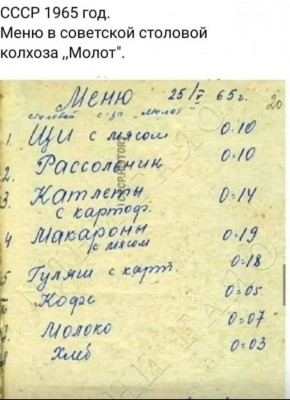 СССР 1965 год.
Меню в советской столовой
колхоза ,,Молот".
Меню 25/V 65г.
20
столовой с-за "Молот"
1. Щи с мясом 0=10
2. Рассольник 0.10
3. Катлеты 0=14
с картоф.
4 Макароны 0=19
с мясом
5 Гуляш с карт. 0=18
Кофе 0=05
7. Молоко 0=07
8 Хлеб 0=03